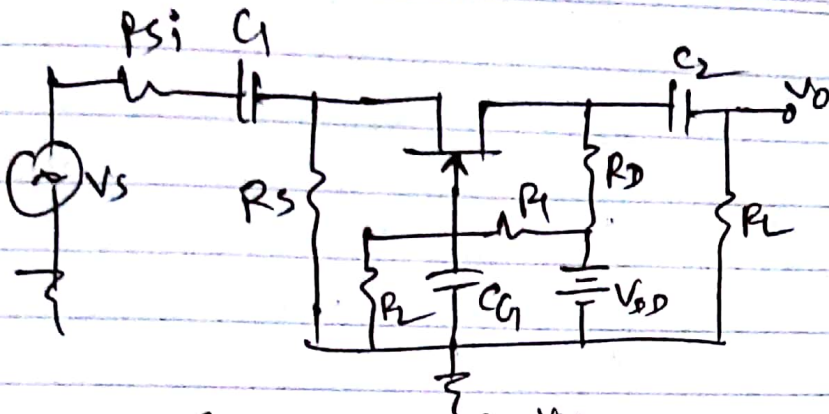 Rsi C1
C2
Vo
Vs
RS
RD
R1
RL
R2
CG
VDD